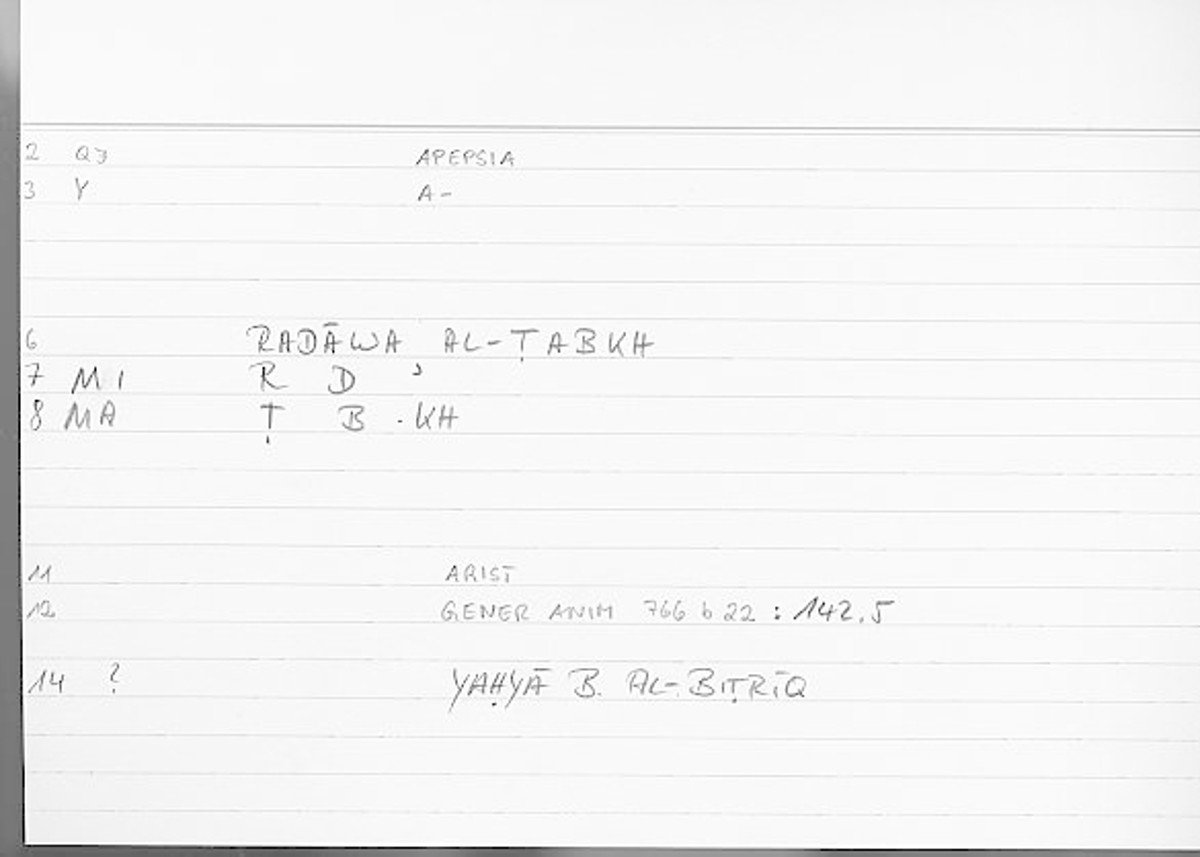 2 QJ APEPSIA
3 Y A-
6 RADĀWA AL-ṬABKH
7 MI R D ʾ
8 MA Ṭ B .KH
11 ARIST
12 GENER ANIM 766 b 22 : 142.5
14 ? YAḤYĀ B. AL-BIṬRĪQ